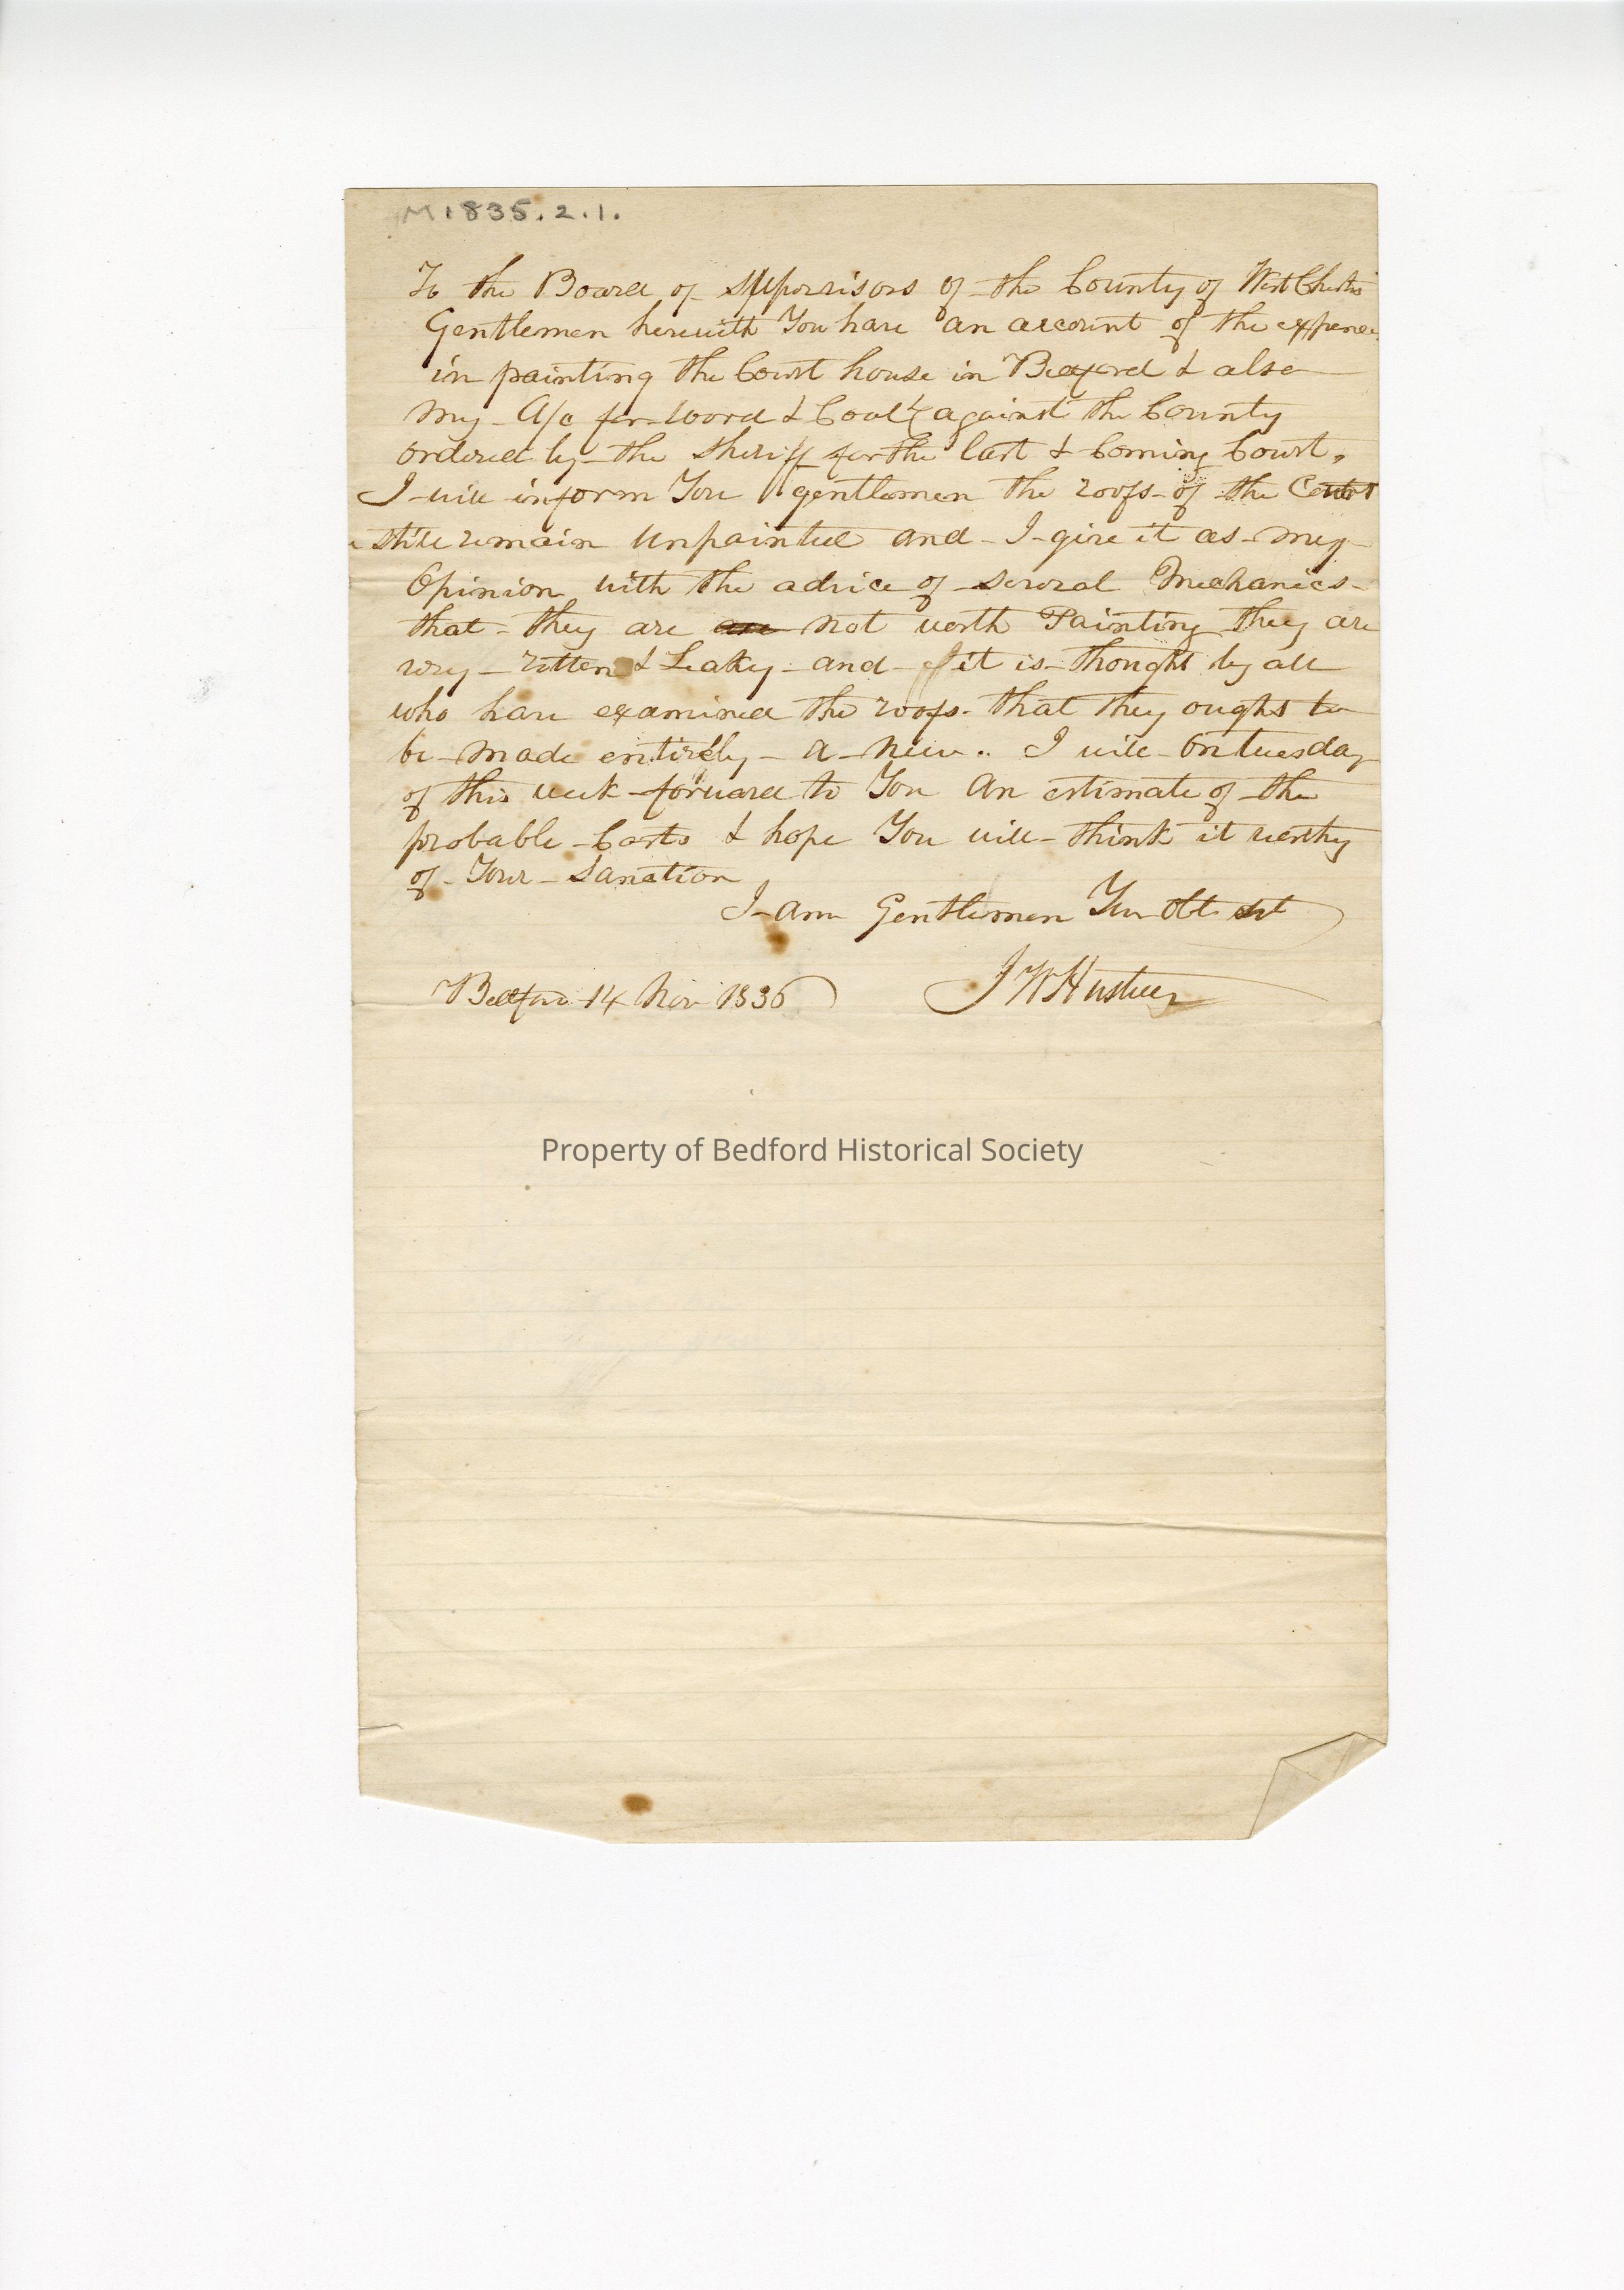 M1835.2.1.
To the Board of Suppervisors of the County of West Chester
Gentlemen herewith You have an account of the expence
in painting the Court house in Bedford & also
my A/c for wood & Coal against the County
ordered by the Sheriff for the last & Coming Court,
I will inform You gentlemen the roofs of the Court
still remain unpainted and I give it as my
Opinion with the advice of several Mechanics
that they are are not worth Painting they are
very rotten & Leaky and it is thought by all
who have examined the roofs that they ought to
be made entirely a new .. I will On tuesday
of this week forward to You An estimate of the
probable Costs & hope You will think it worthy
of Your Sanction
I am Gentlemen Your Obt Svt
J W
Bedford 14 Nov 1836
Property of Bedford Historical Society